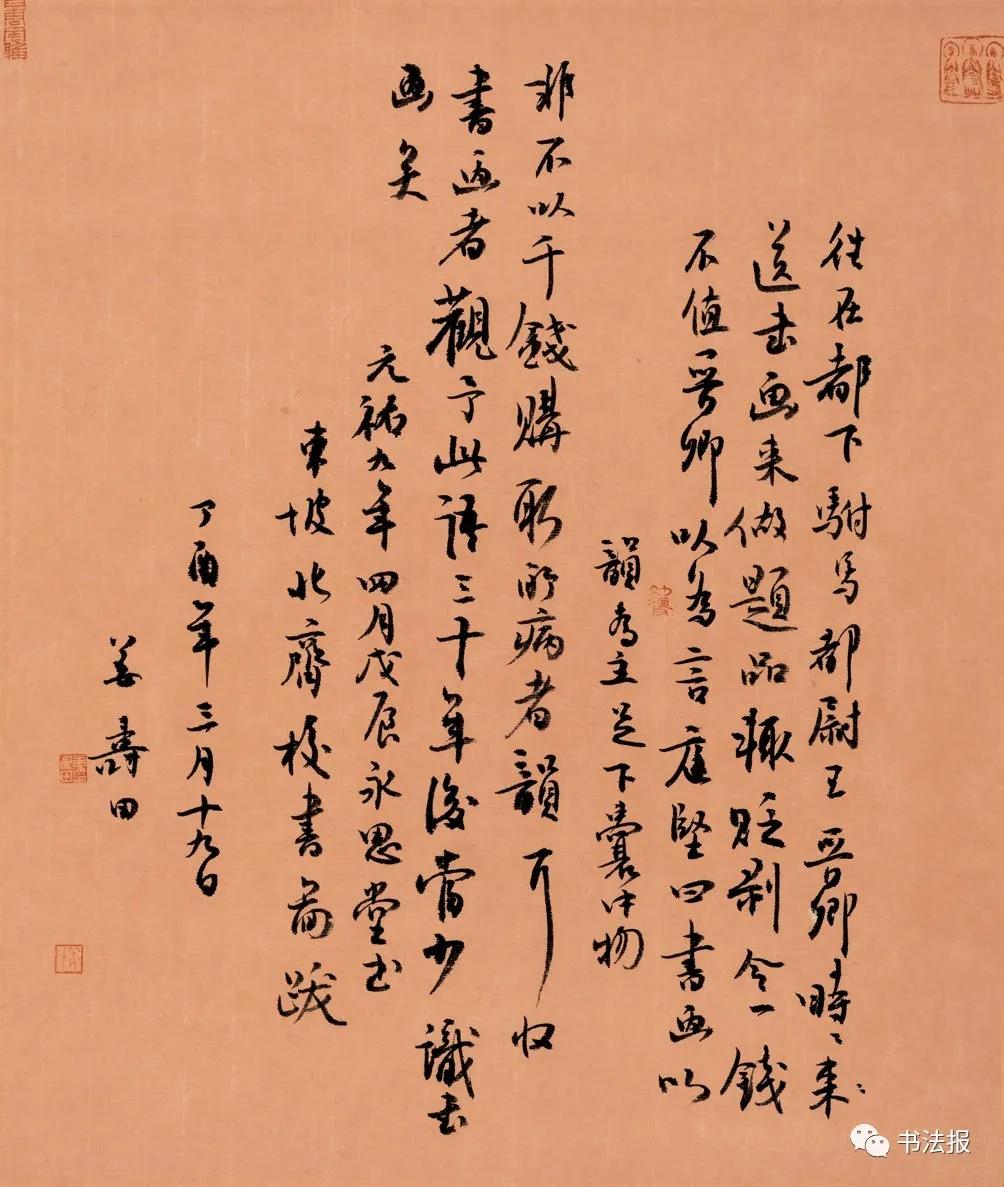 往在都下駙馬都尉王晋卿時〻来〻
送书画来做題品輒貶剥令一錢
不值晋卿以為言庭堅曰書画以
韻為主足下囊中物
非不以千錢購取所病者韻耳收
書画者觀予此語三十年後當少識书
画矣
元祐九年四月戊辰永思堂书
東坡北齊校書前跋
丁酉年三月十九日
姜壽田
书法报